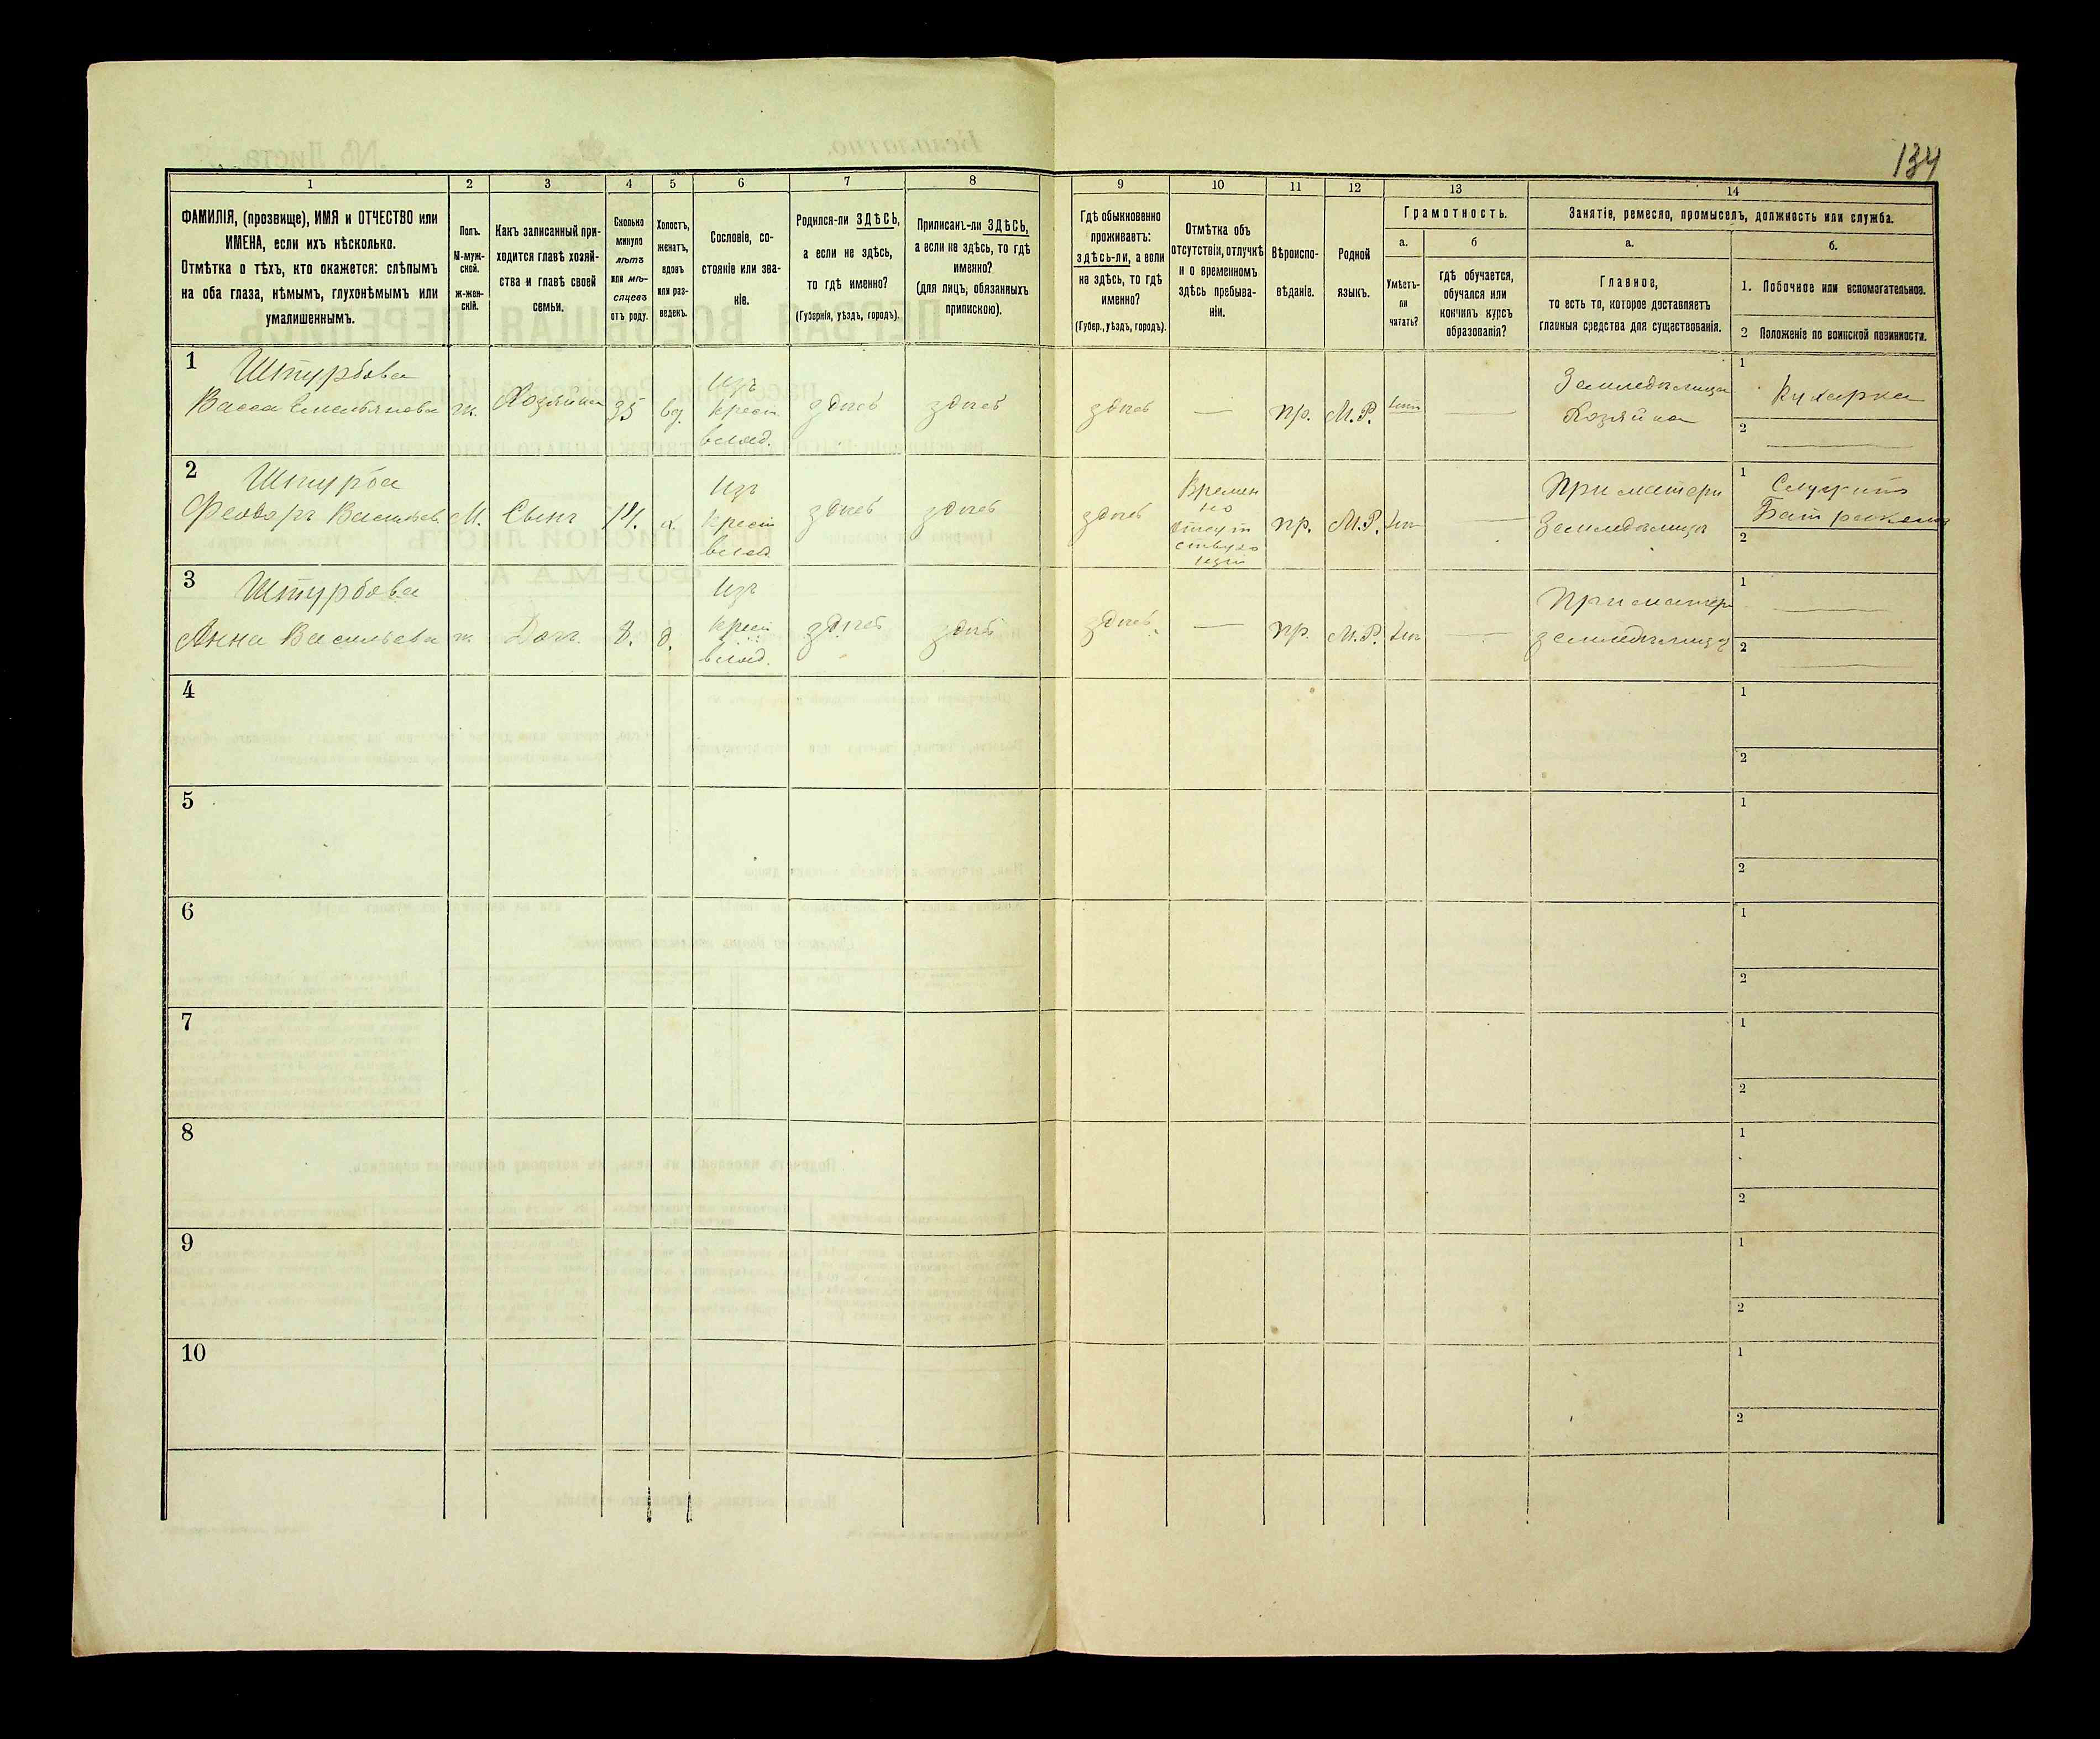 134
1
2
3
4
5
6
7
8
9
10
11
12
13
14
ФАМИЛІЯ, (прозвище), ИМЯ и ОТЧЕСТВО или
ИМЕНА, если ихъ нѣсколько.
Отмѣтка о тѣхъ, кто окажется: слѣпымъ
на оба глаза, нѣмымъ, глухонѣмымъ или
умалишеннымъ.
Полъ.
М-муж-
ской.
ж-жен-
скій.
Какъ записанный при-
ходится главѣ хозяй-
ства и главѣ своей
семьи.
Сколько
минуло
лѣтъ
или мѣ-
сяцевъ
отъ роду.
Холостъ,
женатъ,
вдовъ
или раз-
веденъ.
Сословіе, со-
стояніе или зва-
ніе.
Родился-ли ЗДѢСЬ,
а если не здѣсь,
то гдѣ именно?
(Губернія, уѣздъ, городъ).
Приписанъ-ли ЗДѢСЬ,
а если не здѣсь, то гдѣ
именно?
(для лицъ, обязанныхъ
припискою).
Гдѣ обыкновенно
проживаетъ:
здѣсь-ли, а если
не здѣсь, то гдѣ
именно?
(Губер., уѣздъ, городъ).
Отмѣтка объ
отсутствіи, отлучкѣ
и о временномъ
здѣсь пребыва-
ніи.
Вѣроиспо-
вѣданіе.
Родной
языкъ.
Грамотность.
а.
б
Умѣетъ-
ли
читать?
гдѣ обучается,
обучался или
кончилъ курсъ
образованія?
Занятіе, ремесло, промыселъ, должность или служба.
а.
б.
Главное,
то есть то, которое доставляетъ
главныя средства для существованія.
1. Побочное или вспомогательное.
2 Положеніе по воинской повинности.
1
Штурбова
Васса Емельянова
ж.
Хозяйка
35
вд.
Изъ
крест.
влад.
здѣсь
здѣсь
здѣсь
—
пр.
М.Р.
нѣтъ
—
Земледѣлица
Хозяйка
1
Кухарка
2
—
2
Штурба
Феодоръ Васильев.
М.
Сынъ
14.
х.
Изъ
крест
влад.
здѣсь
здѣсь
здѣсь
Времен
но
отсут
ствую
щій
пр.
М.Р.
нѣтъ
—
При матери
Земледѣлица
1
Служитъ
Батракомъ
2
3
Штурбова
Анна Васильева
ж.
Доч.
8.
д.
Изъ
крест
влад.
здѣсь
здѣсь
здѣсь.
—
пр.
М.Р.
нѣтъ
—
При матери
земледѣлица
1
—
2
—
4
1
2
5
1
2
6
1
2
7
1
2
8
1
2
9
1
2
10
1
2